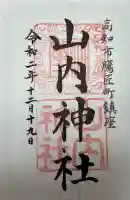 高知市鷹匠町鎮座
山内神社
令和二年十二月十九日